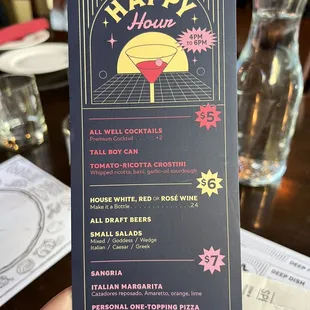 HAPPY
Hour
4PM
TO 6PM
$5
ALL WELL COCKTAILS
Premium Cocktail . . . . . +2
TALL BOY CAN
TOMATO-RICOTTA CROSTINI
Whipped ricotta, basil, garlic oil sourdough
$6
HOUSE WHITE, RED OR ROSÉ WINE
Make it a Bottle . . . . . 24
ALL DRAFT BEERS
SMALL SALADS
Mixed / Goddess / Wedge
Italian / Caesar / Greek
$7
SANGRIA
ITALIAN MARGARITA
Cazadores reposado, Amaretto, orange, lime
PERSONAL ONE-TOPPING PIZZA
DEEP DISH
DEEP DISH